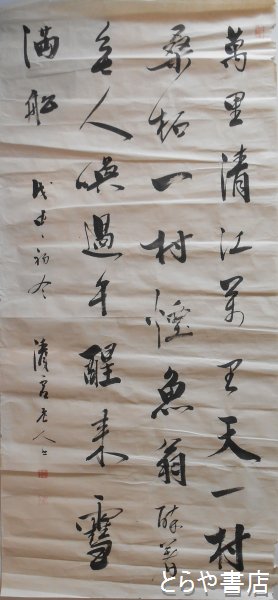 萬里清江萬里天一村
桑柘一村煙漁翁醉着
無人喚過午醒来雪
満船
戊申初冬
老人
とらや書店